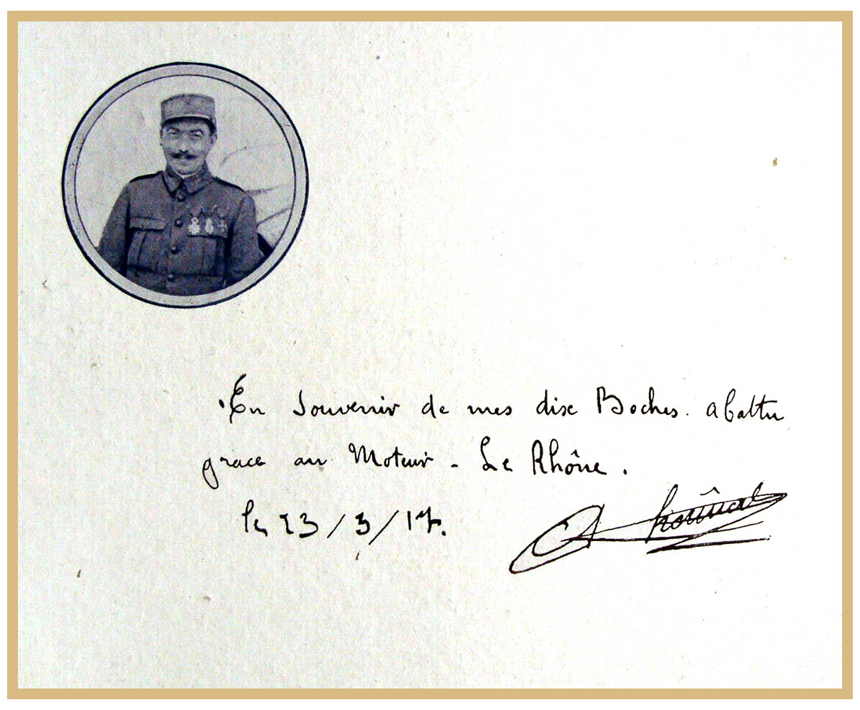 En Souvenir de mes dix Boches. abattu
grace au Moteur - Le Rhône.
le 23/3/17.